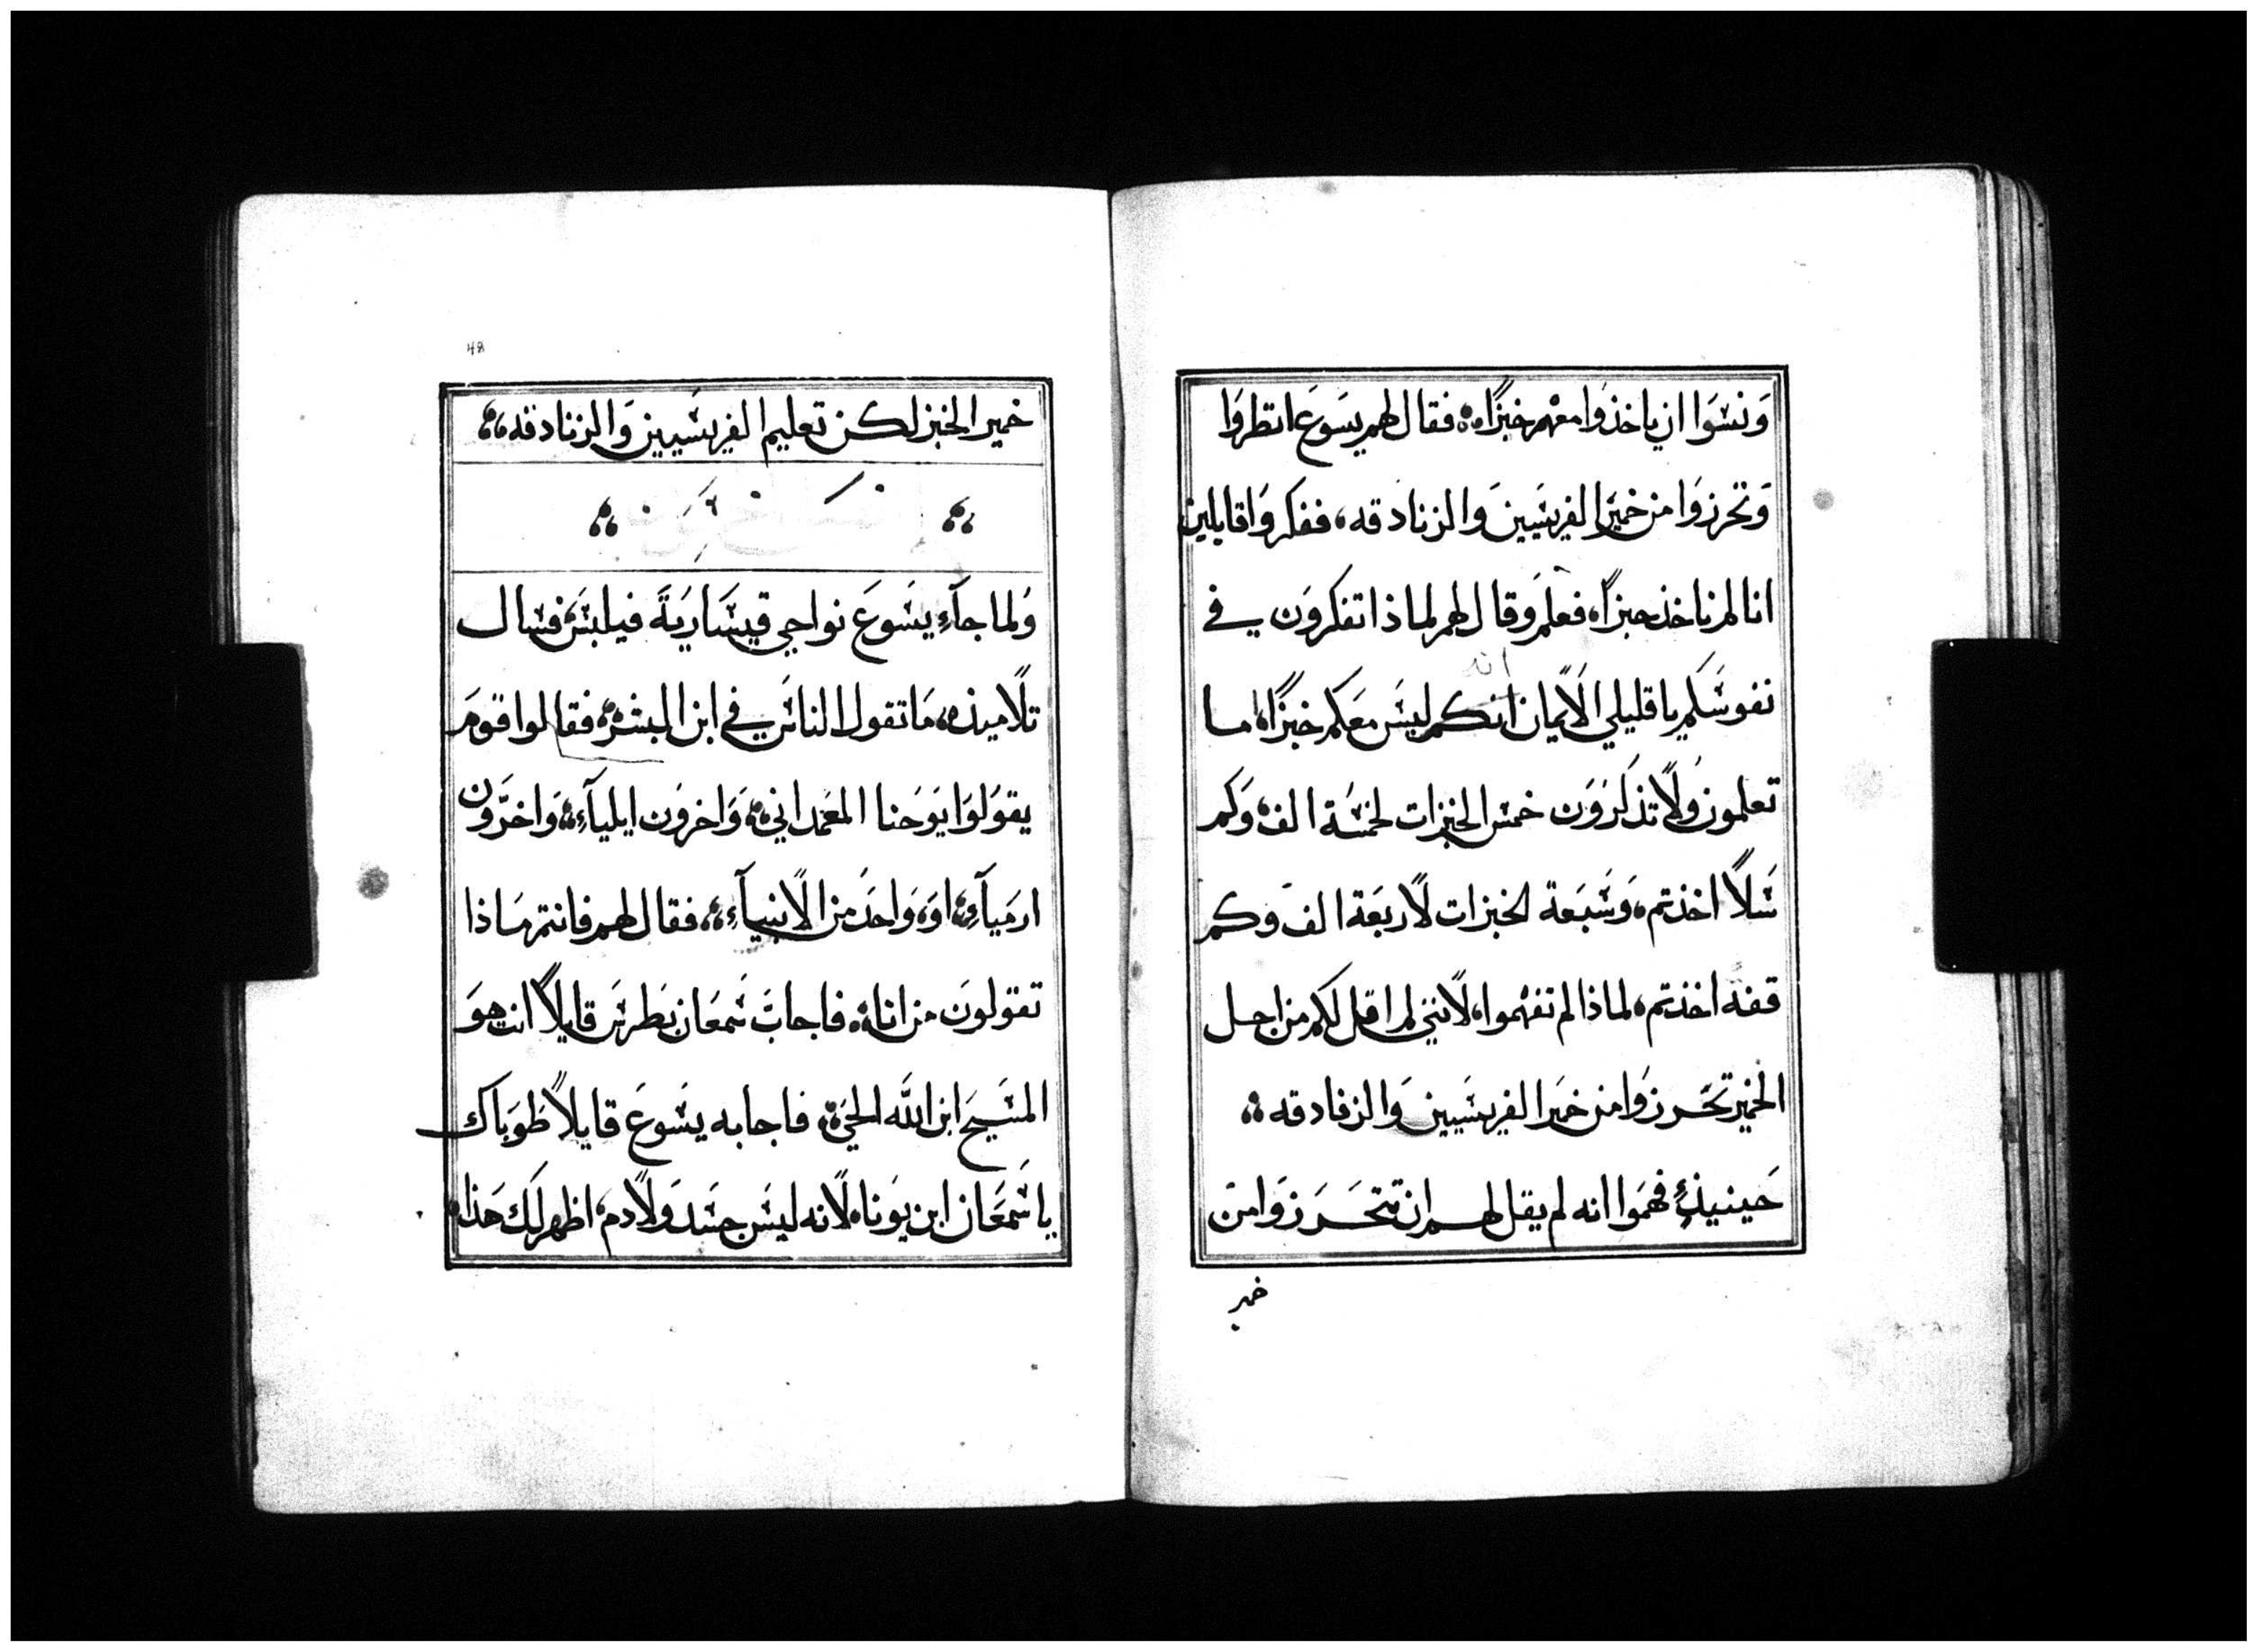 وَنسَوا ان ياخذوا معهم خبزًا، فقال لهم يسوع انظروا
وَتحرزوَا من خميَر الفريسَيين وَالزنادقه، ففكروَا قايلين
انا لم ناخذ خبزًا، فعلم وَقال لهم لماذا تفكروَن في
انه
نفوسَكم يا قليلي الاَيمان انكم ليسَ معَكم خبزًا، اما
تعلمون وُلاً تذكروَن خمس الخبزات لخمسُة الف، وَكم
سَلاً اخذتم، وَسَبعَة الخبزات لاًربعَة الف وَكم
قفه اخذتم، لماذا لم تفهموا، لاًنني لم اقل لكم من اجل
الخمير تحَرزوَا من خميَر الفريسَيين وَالزنادقه
حَينيذٍ فهمَوا انه لم يقل لهم ان تتحَرَزوَا من
خمير
48
خمير الخبز لكن تعليم الفريسَيين وَالزنادقه
وُلما جآء يسَوعَ نواحي قيسَاريَة فيلبسَ، فسال
تلاًميذه، مَا تقول الناسَ في ابن البشر، فقالوا قومَ
يقوَلوَا يوَحَنا المعَمداني، وَاخروَن ايليآء، وَاخرَون
ارميآء، اوَ، وَاحدَ من الاًنبيآء، فقال لهم فانتم مَاذا
تقولونَ من انا، فاجابَ سَمعَان بَطرسَ قايلاً انت هوَ
المسَيحَ ابن اللَه الحيَ، فاجابه يسَوعَ قايلاً طوَباك
يا سَمعَان ابن يوَنا، لاًنه ليسَ جسَد وَلاًدم، اظهر لك هَذا،